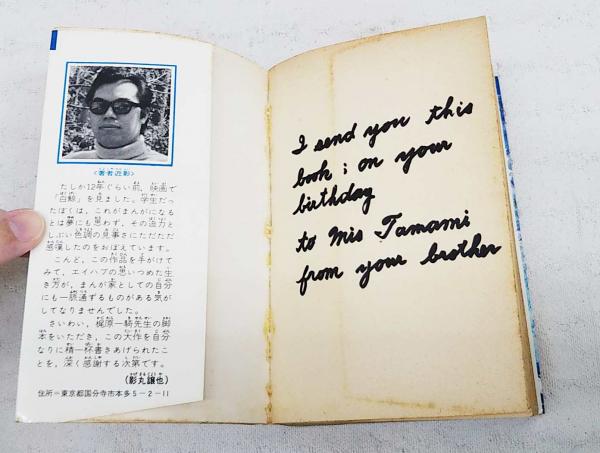 〈著者近影〉
たしか12年ぐらい前、映画で
「白鯨」を見ました。学生だっ
たぼくは、これがまんがになる
とは夢にも思わず、その迫力と
しぶい色調の見事さにただただ
感嘆したのをおぼえています。
こんど、この作品を手がけて
みて、エイハブの思いつめた生
き方が、まんが家としての自分
にも一脈通ずるものがある気が
してなりませんでした。
さいわい、梶原一騎先生の脚
本をいただき、この大作を自分
なりに精一杯書きあげられたこ
とを、深く感謝する次第です。
(影丸譲也)
住所=東京都国分寺市本多5-2-11
I send you this
book ; on your
birthday
to Mis Tamami
from your brother